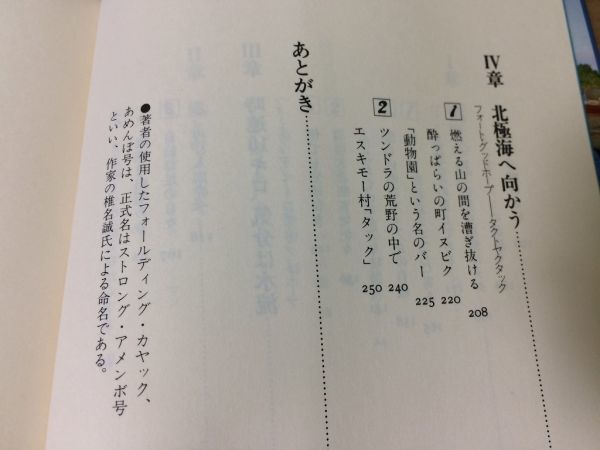 Ⅳ章 北極海へ向かう……………
フォート・グッドホープ——タクトヤクタック
1 燃える山の間を漕ぎ抜ける 208
酔っぱらいの町イヌビク 220
「動物園」という名のバー 225
2 ツンドラの荒野の中で 240
エスキモー村「タック」 250
あとがき……………
●著者の使用したフォールディング・カヤック、
あめんぼ号は、正式名はストロング・アメンボ号
といい、作家の椎名誠氏による命名である。